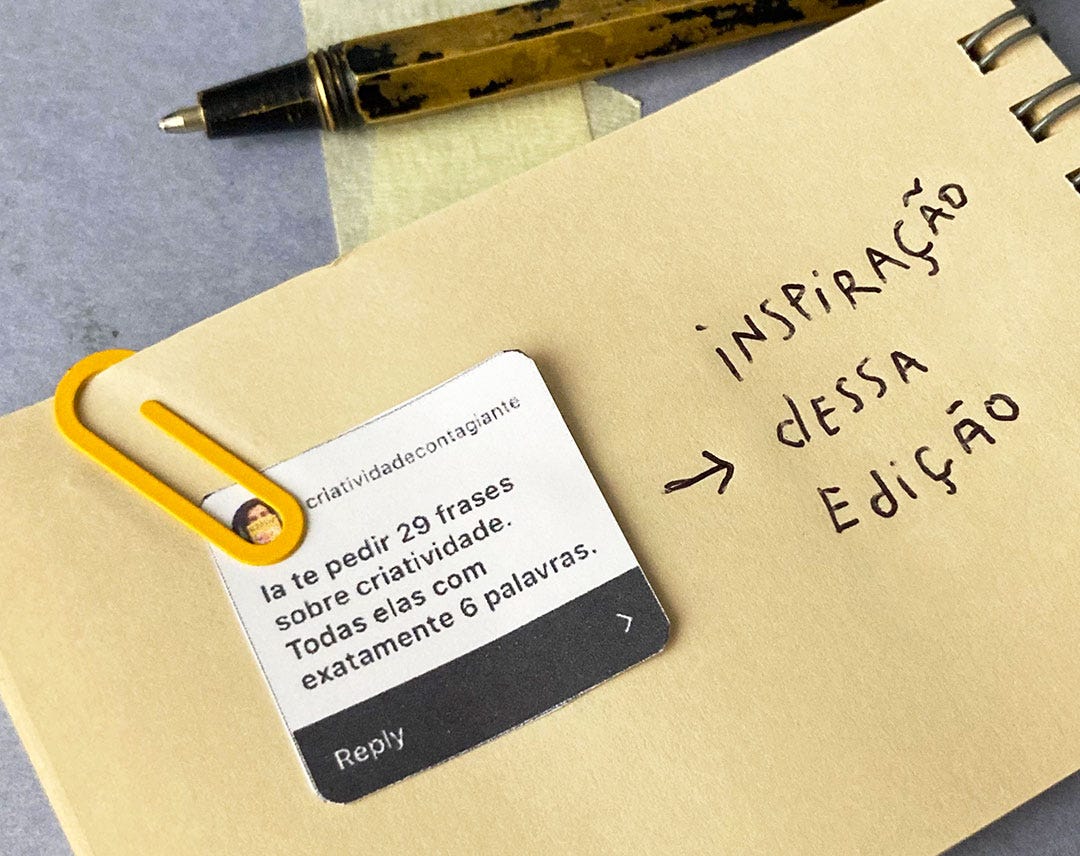 criatividadecontagiante
Ia te pedir 29 frases
sobre criatividade.
Todas elas com
exatamente 6 palavras.
Reply
iNSPiRAÇÃO
dESSA
EdiÇÃO